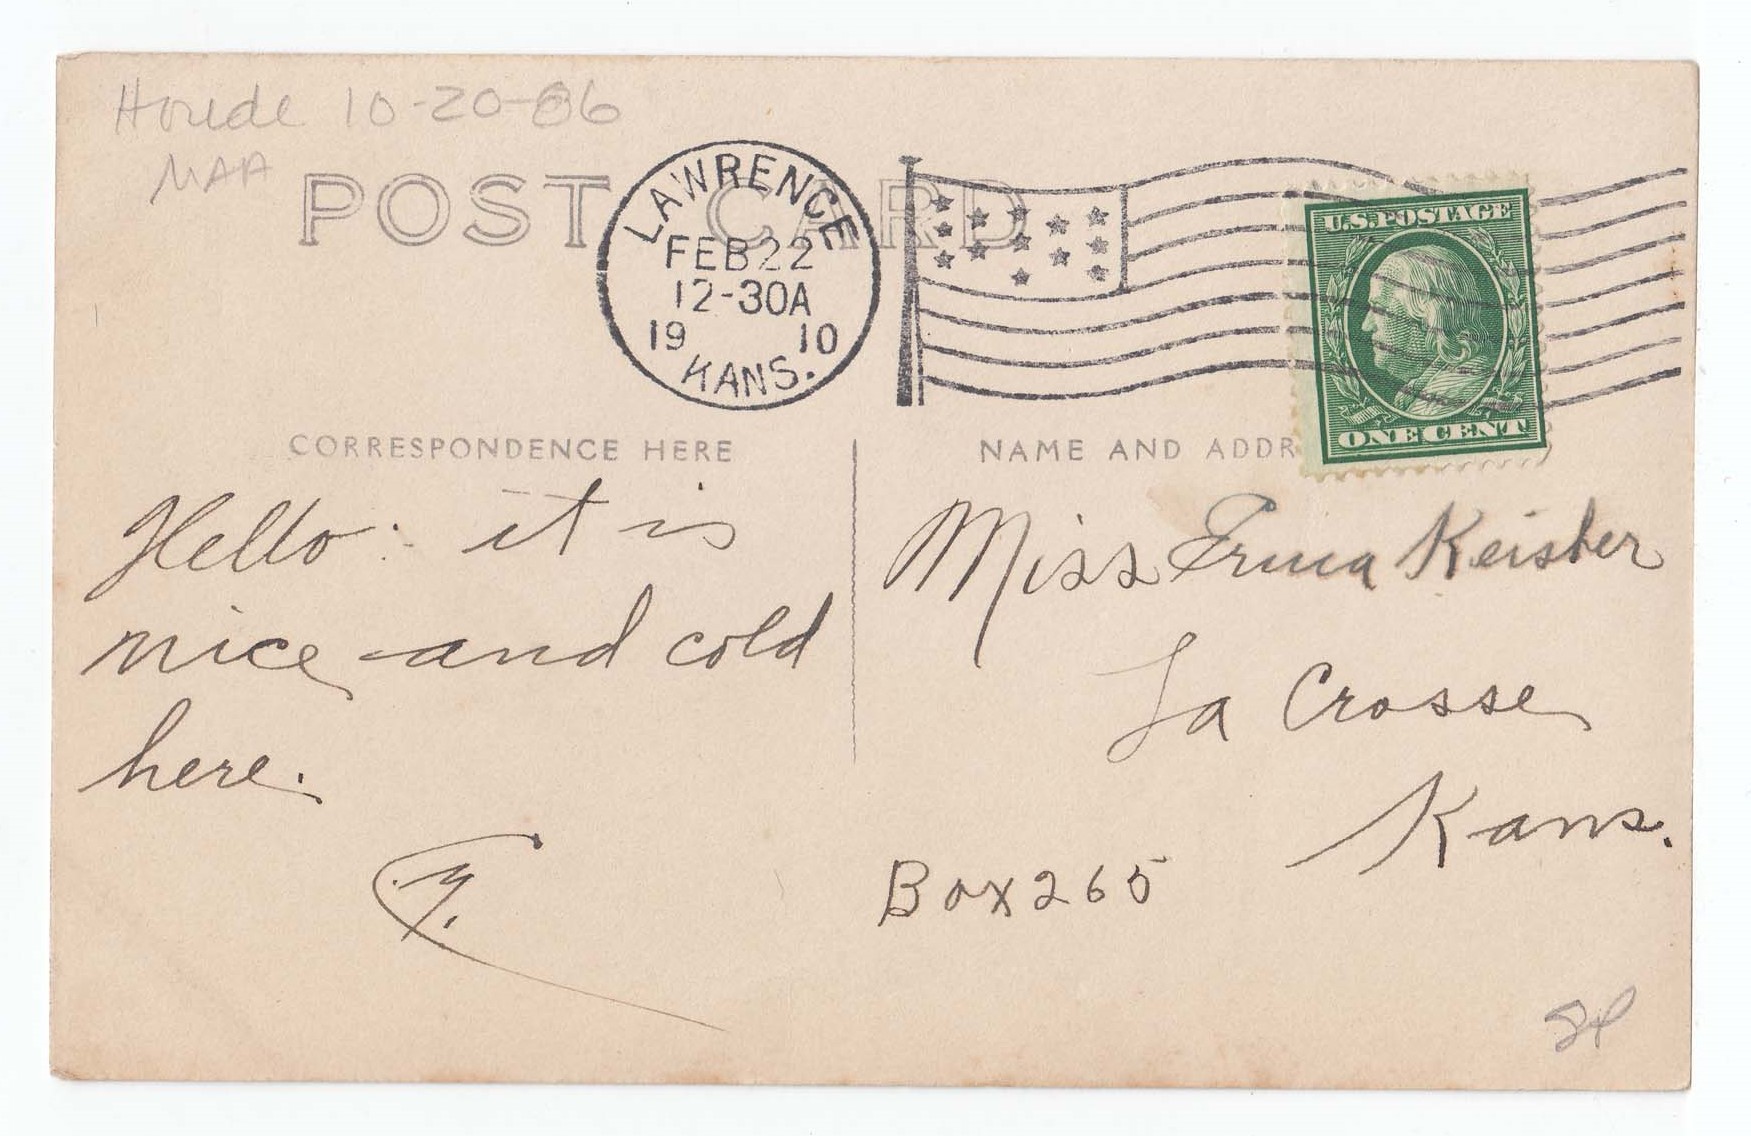 Houde 10-20-86
MAA
POST CARD
LAWRENCE
FEB 22
12-30A
19 10
KANS.
U.S. POSTAGE
ONE CENT
CORRESPONDENCE HERE
NAME AND ADDR
Hello: it is
nice and cold
here.
Miss Erma Keisher
La Crosse
Kans.
Box 265